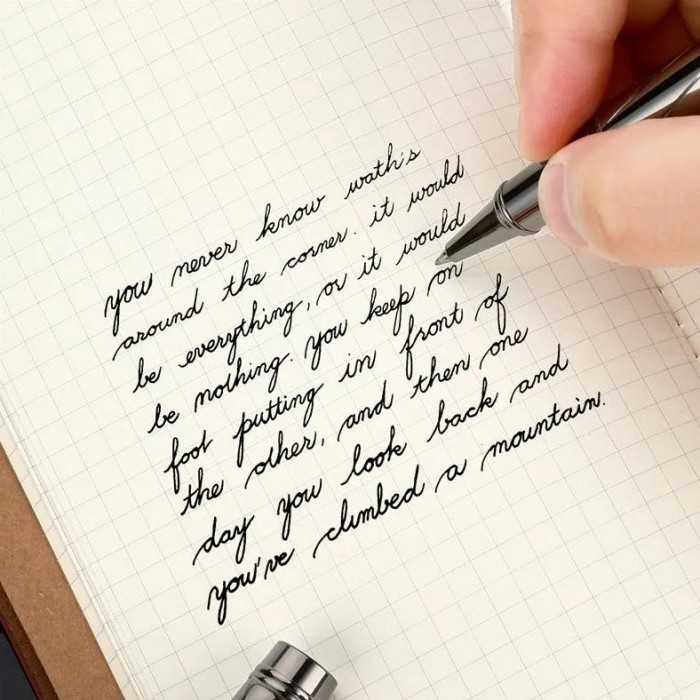 you never know wath's
around the corner. it would
be everything, or it would
be nothing. you keep on
foot putting in front of
the other, and then one
day you look back and
you've climbed a mountain.